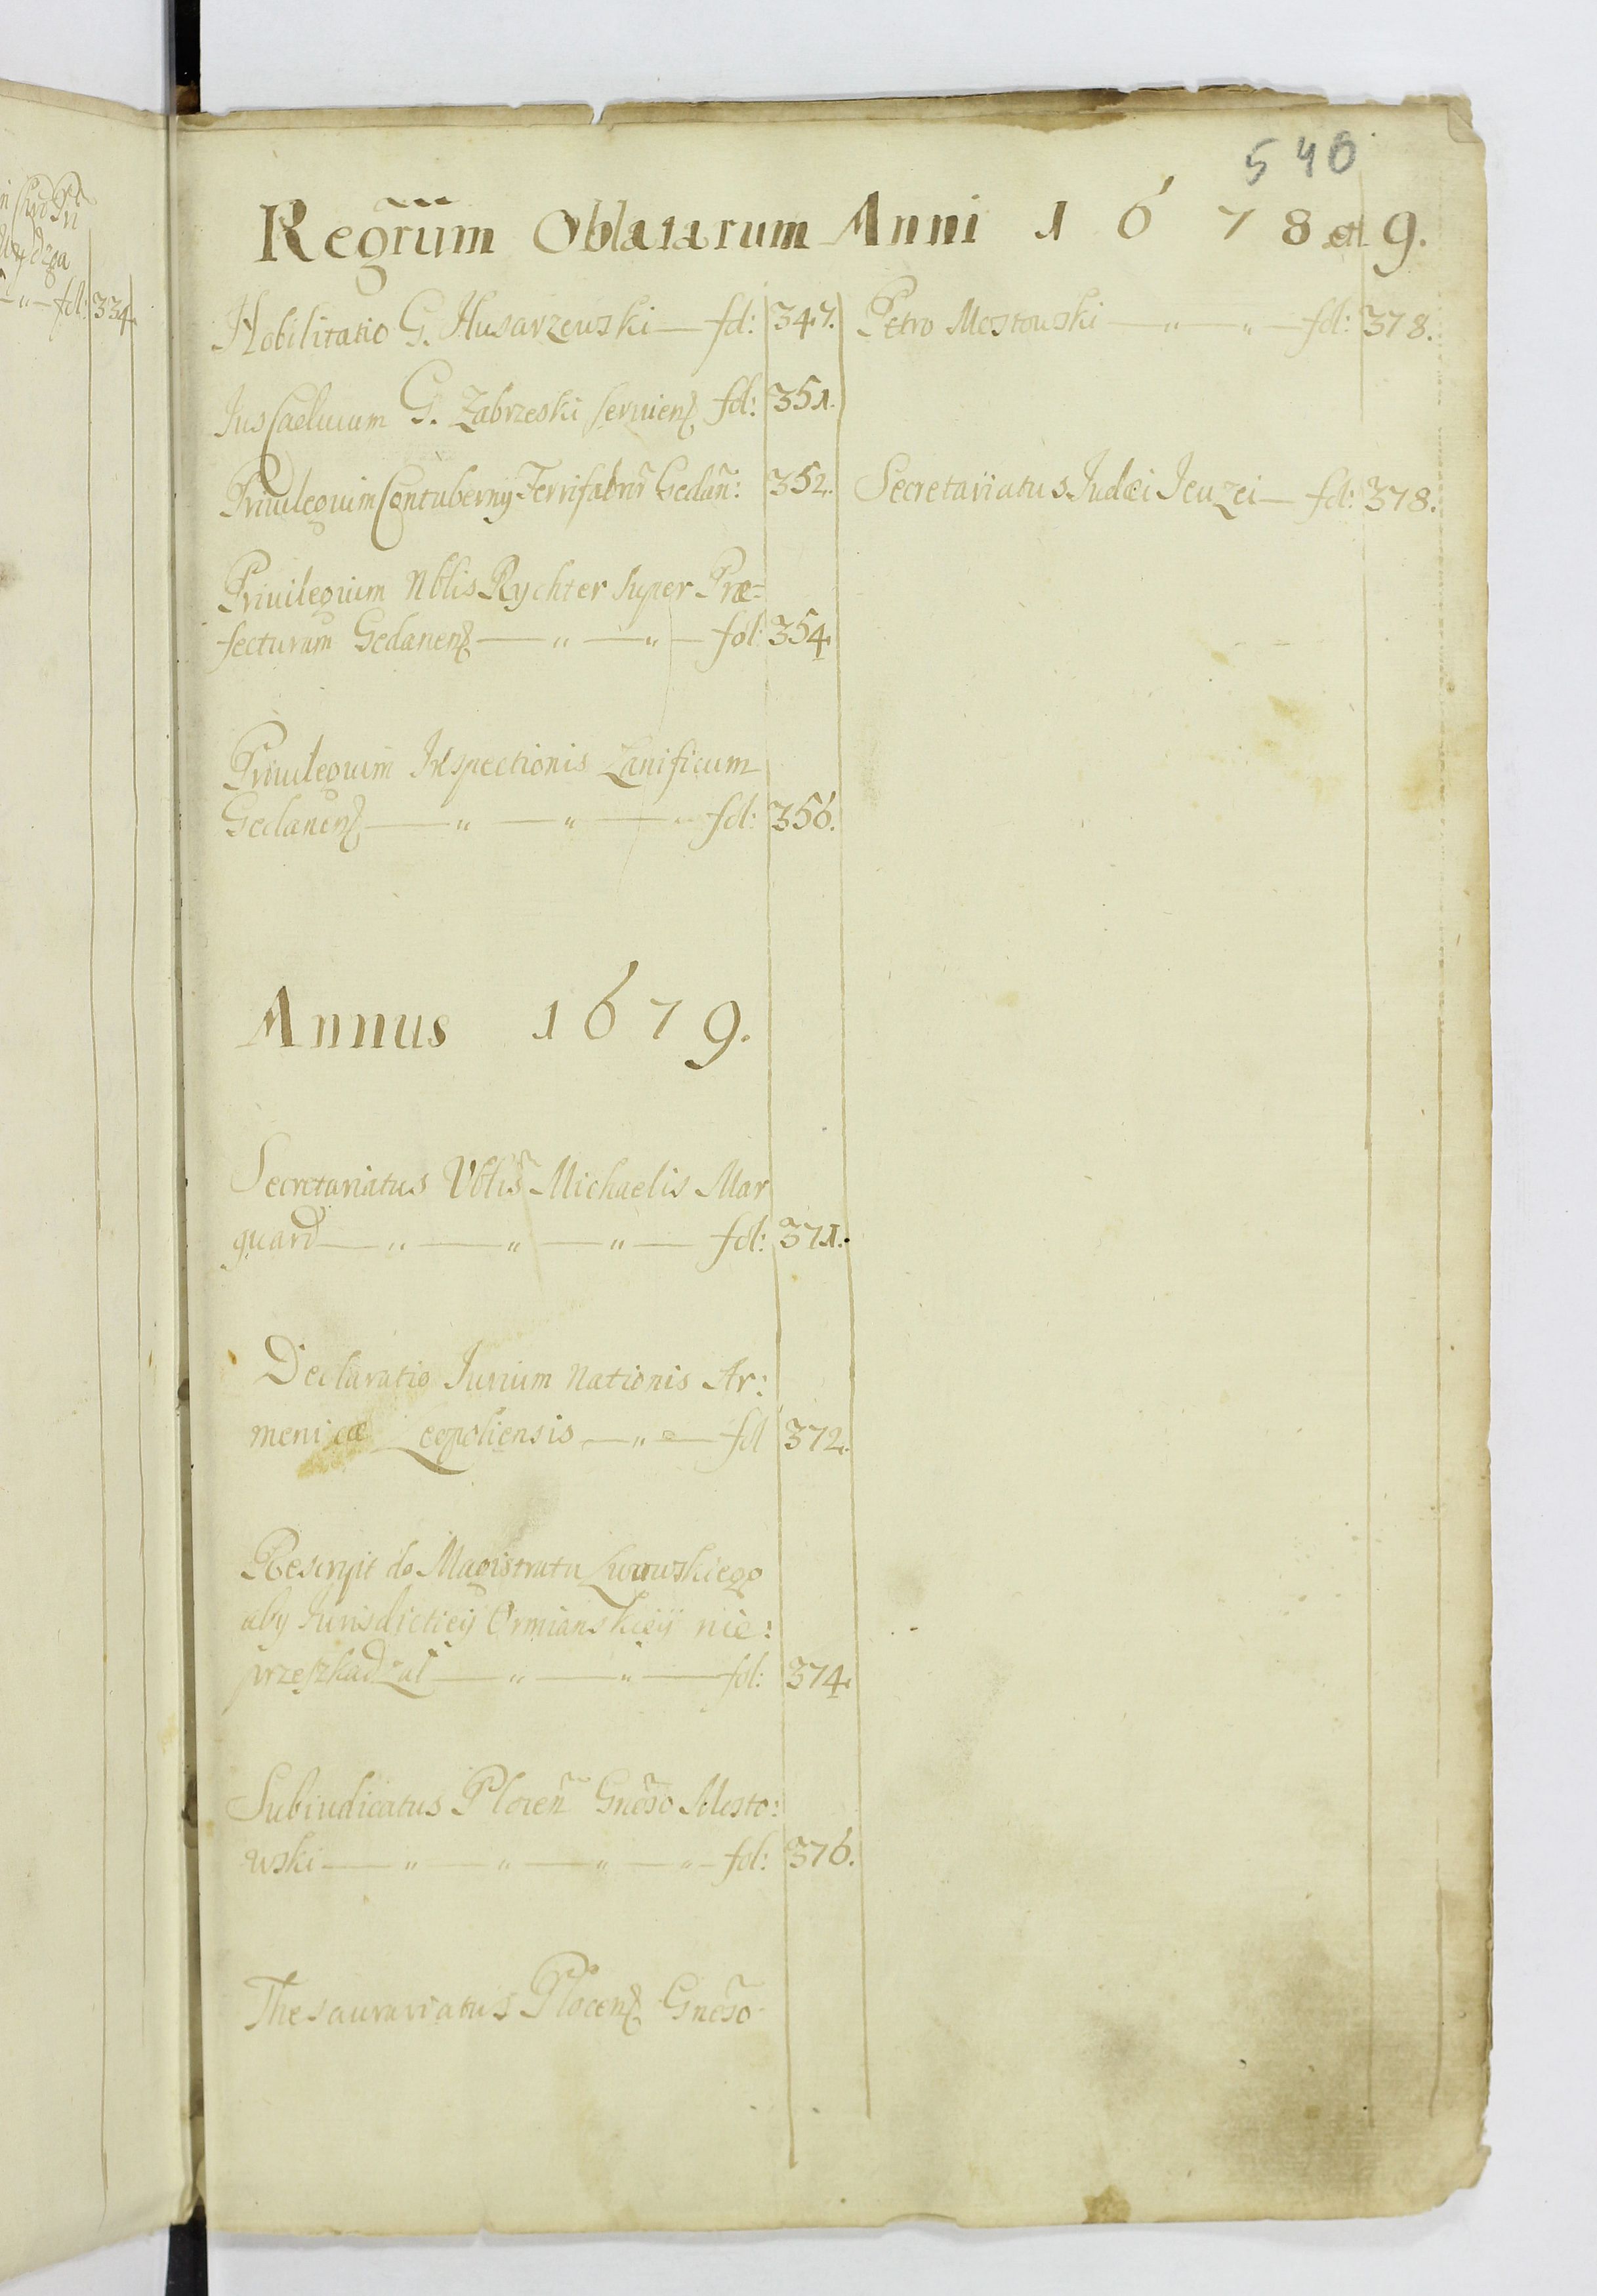 540
Regrum Oblatarum Anni 1678 et 9.
Nobilitatio G. Husarzewski — fol: 347.
Jus Caducum G. Zabrzeski seruien. fol: 351.
Priuilegium Contubernij Ferrifabror Gedan: 352.
Priuilegium Nblis Rychter super Præ=
fecturam Gedanen — " — " — fol: 354.
Priuilegium Inspectionis Lanificum
Gedanen — " — " — fol: 356.
Annus 1679.
Secretariatus Nblis Michaelis Mar
quard — " — " — " — fol: 371.
Declaratio Jurium Nationis Ar:
menicæ Leopoliensis — " — fol 372.
Rescrypt do Magistratu Lwowskiego
aby Jurisdictiey Ormianskiey nie:
przeszkadzal — " — " — fol: 374.
Subiudicatus Plocen Gnoso Mosto:
wski — " — " — " — " — fol: 376.
Thesaurariatus Plocen Gnoso
Petro Mostowski — " — " — fol: 378.
Secretariatus Judæi Jeuzei — fol: 378.
fol: 334.